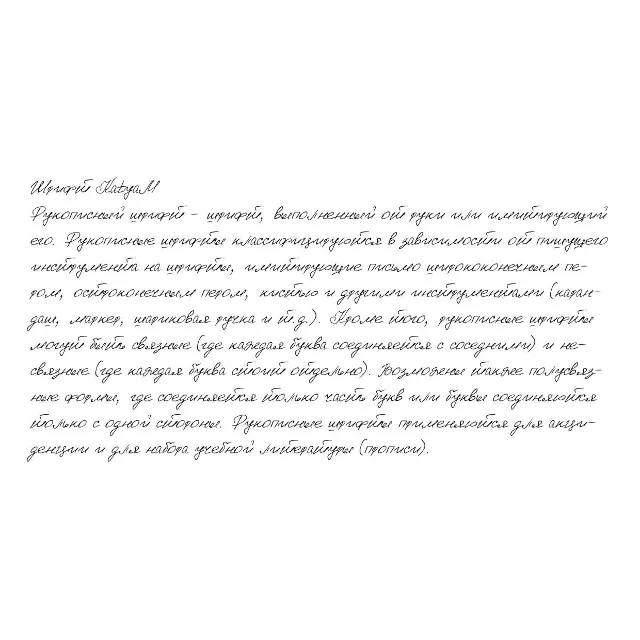 Шрифт KatyaM
Рукописный шрифт – шрифт, выполненный от руки или имитирующий
его. Рукописные шрифты классифицируются в зависимости от пишущего
инструмента на шрифты, имитирующие письмо ширококонечным пе-
ром, остроконечным пером, кистью и другими инструментами (каран-
даш, маркер, шариковая ручка и т.д.). Кроме того, рукописные шрифты
могут быть связные (где каждая буква соединяется с соседними) и не-
связные (где каждая буква стоит отдельно). Возможны также полусвяз-
ные формы, где соединяется только часть букв или буквы соединяются
только с одной стороны. Рукописные шрифты применяются для акци-
денции и для набора учебной литературы (прописи).